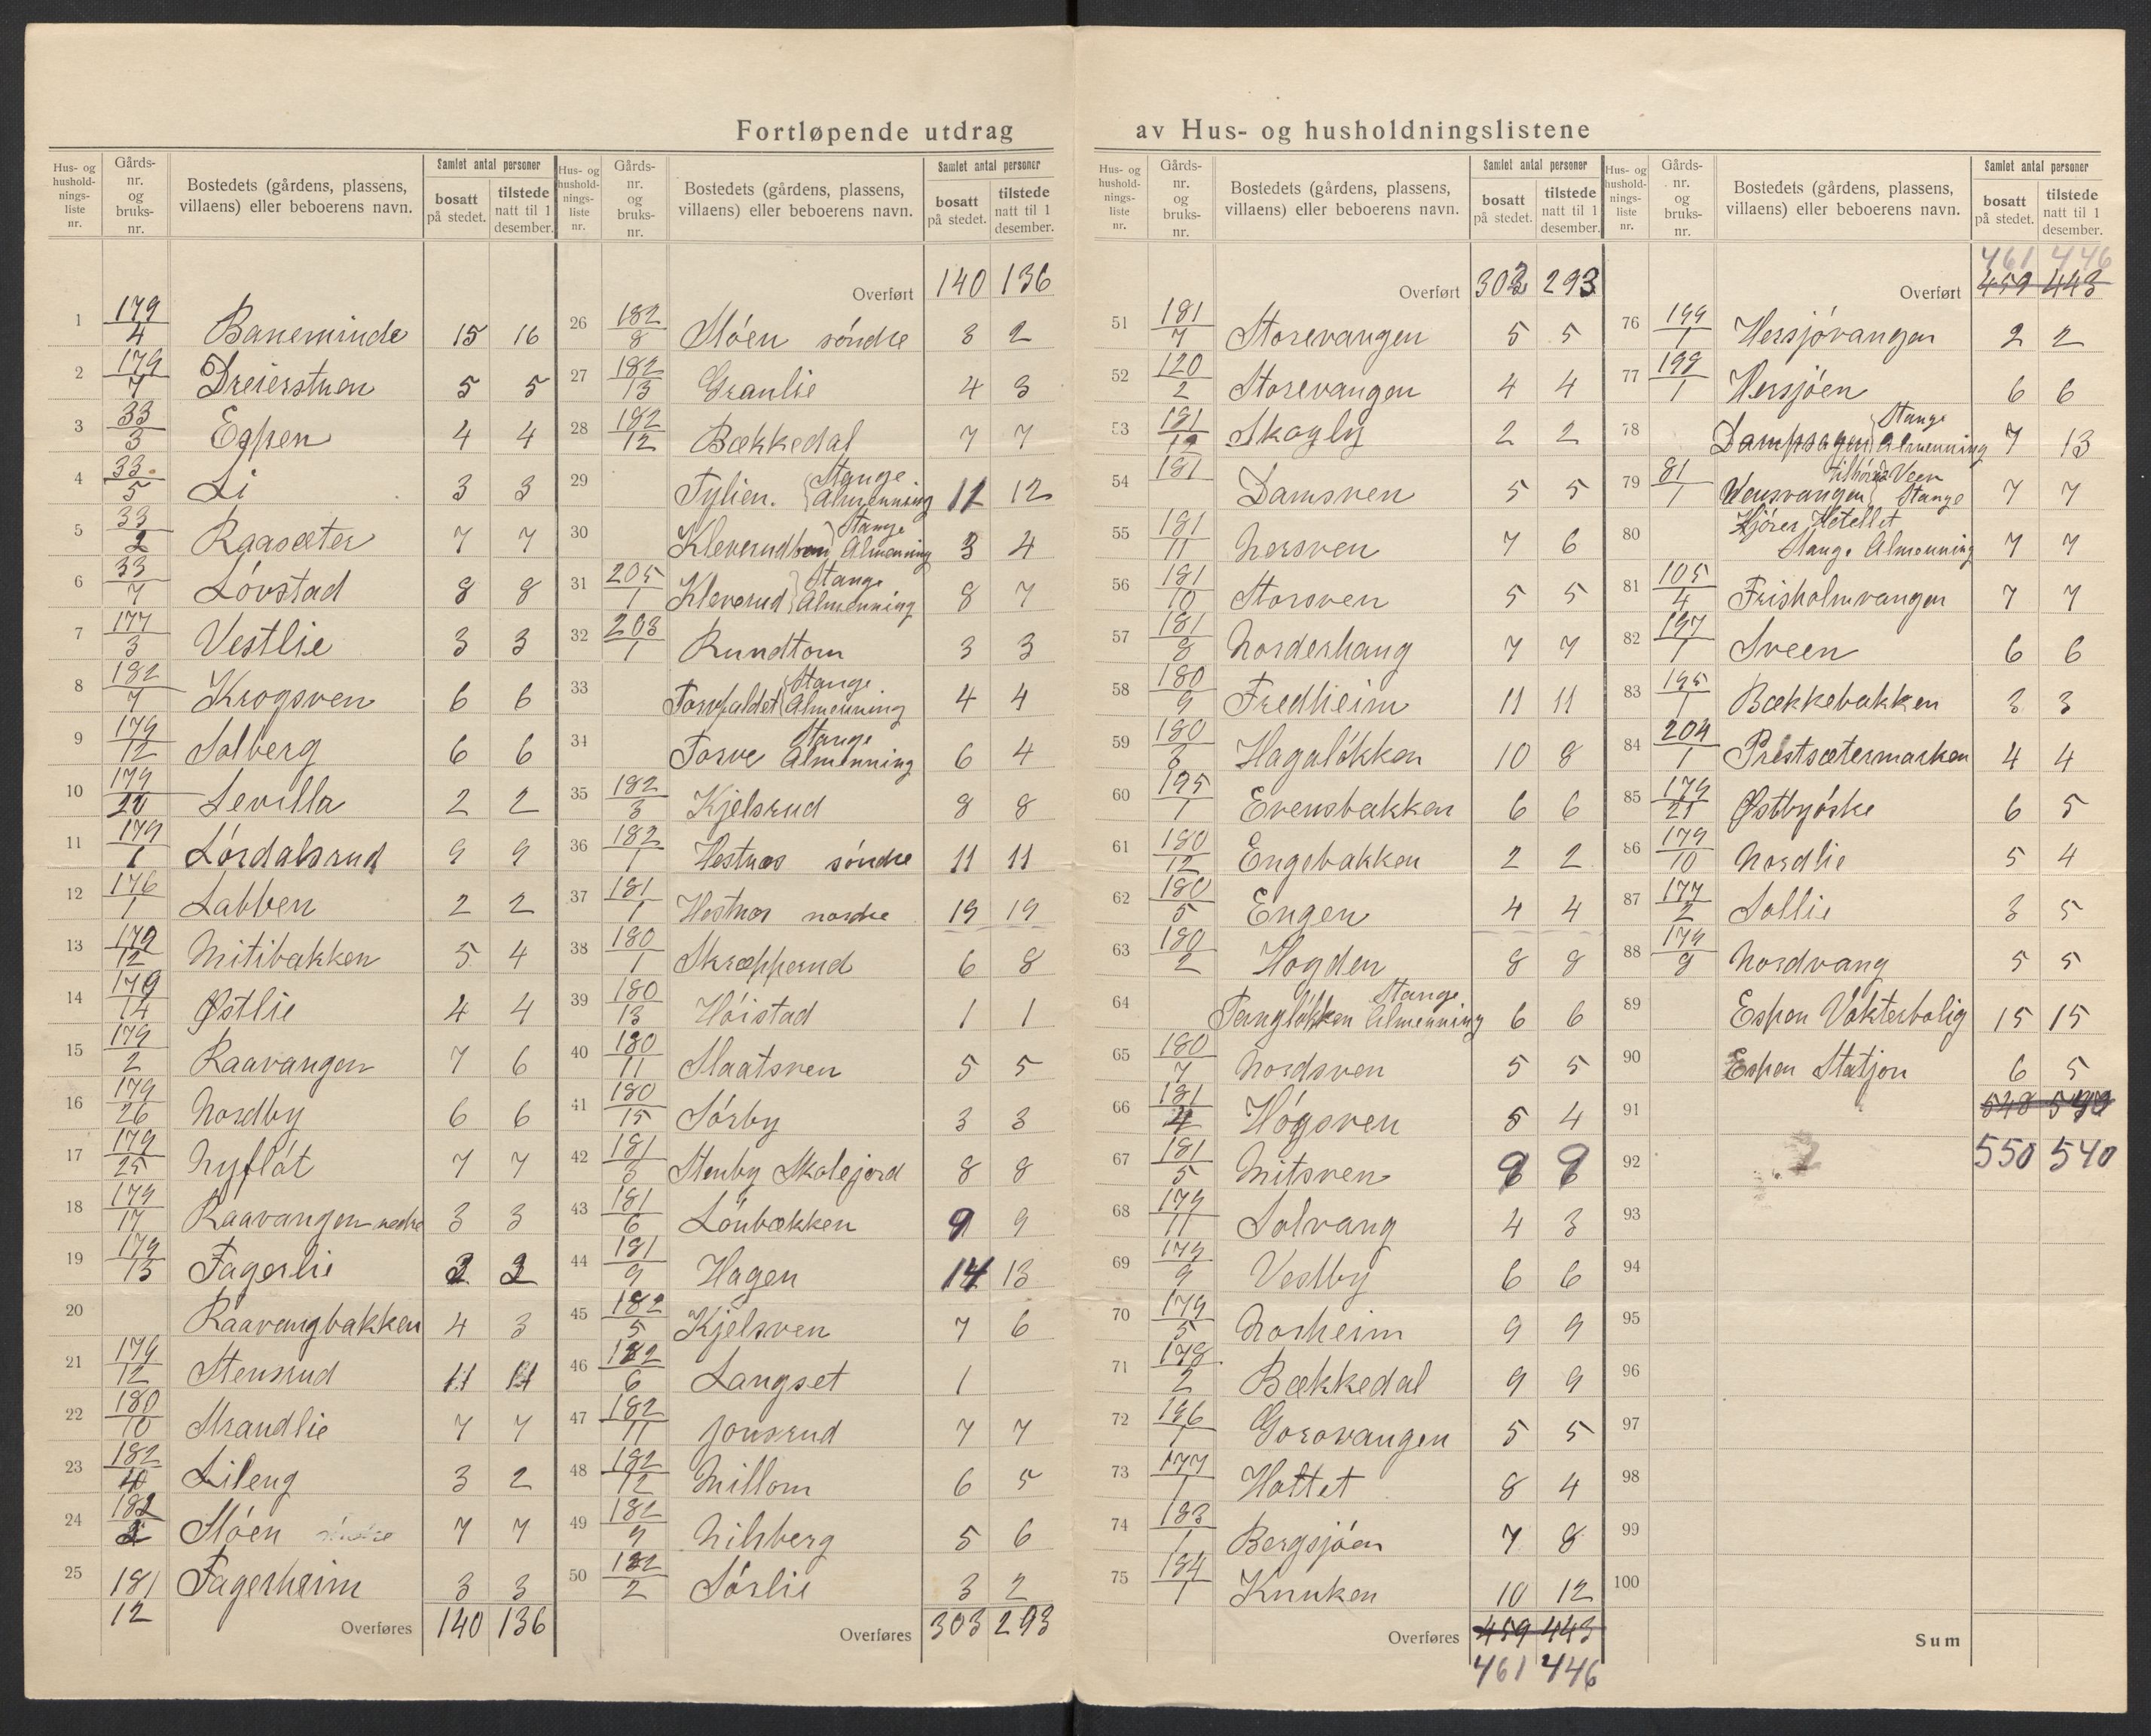 Fortløpende utdrag av Hus- og husholdningslistene
Hus- og husholdningsliste nr. Gårdsnr. og bruksnr. Bostedets (gårdens, plassens, villaens) eller beboerens navn. Samlet antal personer bosatt på stedet. tilstede natt til 1 desember.
1 179/4 Baneminde 15 16
2 179/7 Dreierstuen 5 5
3 33/3 Espen 4 4
4 33/5 Li 3 3
5 33/2 Raasæter 7 7
6 33/7 Løvstad 8 8
7 177/3 Vestlie 3 3
8 182/7 Krogsven 6 6
9 179/12 Solberg 6 6
10 179/20 Sevilla 2 2
11 179/1 Lørdalsrud 9 9
12 176/1 Labben 2 2
13 179/12 Nitibakken 5 4
14 179/14 Østlie 4 4
15 179/2 Raavangen 7 6
16 179/26 Nordby 6 6
17 179/25 Nyfløt 7 7
18 179/17 Raavangen nedre 3 3
19 179/13 Fagerlie 2 2
20 Raavangbakken 4 3
21 179/12 Stensrud 11 11
22 180/10 Strandlie 7 7
23 182/10 Lileng 3 2
24 182/2 Moen 7 7
25 181/12 Fagerheim 3 3
Overføres 140 136
Hus- og husholdningsliste nr. Gårdsnr. og bruksnr. Bostedets (gårdens, plassens, villaens) eller beboerens navn. Samlet antal personer bosatt på stedet. tilstede natt til 1 desember.
Overført 140 136
26 182/8 Moen søndre 3 2
27 182/13 Granlie 4 3
28 182/12 Bækkedal 7 7
29 Tylien. Stange Almenning 11 12
30 Stange Almenning 3 4
31 205/1 Kleverud Stange Almenning 8 7
32 203/1 Rundtom 3 3
33 Torvfaldet Stange Almenning 4 4
34 Torve Stange Almenning 6 4
35 182/3 Kjelsrud 8 8
36 182/1 Hestnæs søndre 11 11
37 181/1 Hestnæs nordre 19 19
38 180/1 Skræpperud 6 8
39 180/13 Høistad 1 1
40 180/11 Slaatsven 5 5
41 180/15 Sørby 3 3
42 181/3 Stenby Skolejord 8 8
43 181/6 Lønbækken 9 9
44 181/9 Hagen 14 13
45 182/5 Kjelsven 7 6
46 182/6 Langset 1
47 182/11 Jonsrud 7 7
48 182/12 Millom 6 5
49 182/9 Nilsberg 5 6
50 182/2 Sørlie 3 2
Overføres 303 293
Hus- og husholdningsliste nr. Gårdsnr. og bruksnr. Bostedets (gårdens, plassens, villaens) eller beboerens navn. Samlet antal personer bosatt på stedet. tilstede natt til 1 desember.
Overført 303 293
51 181/7 Storevangen 5 5
52 120/2 Storevangen 4 4
53 181/12 Skogly 2 2
54 181 Damsven 5 5
55 181/11 Nersven 7 6
56 181/10 Storsven 5 5
57 181/8 Norderhaug 7 7
58 180/9 Fredheim 11 11
59 180/3 Hagaløkken 10 8
60 195/1 Evensbakken 6 6
61 180/12 Engebakken 2 2
62 180/5 Engen 4 4
63 180/2 Hogden 8 8
64 Tangløkken Stange Almenning 6 6
65 180/7 Nordsven 5 5
66 181/4 Høgsven 5 4
67 181/5 Mitsven 8 8
68 179/11 Solvang 4 3
69 179/9 Vestby 6 6
70 179/5 Norheim 9 9
71 178/2 Bækkedal 9 9
72 196/1 Gorovangen 5 5
73 177/1 Hattet 8 4
74 183/1 Bergsjøen 7 8
75 184/1 Knuken 10 12
Overføres 459 443
461 446
Hus- og husholdningsliste nr. Gårdsnr. og bruksnr. Bostedets (gårdens, plassens, villaens) eller beboerens navn. Samlet antal personer bosatt på stedet. tilstede natt til 1 desember.
461 446
Overført 459 443
76 199/1 Hersjøvangen 2 2
77 198/1 Hersjøen 6 6
78 Dampsagen Stange Almenning 7 13
79 81/1 Vensvangen tilhører Veen Stange 7 7
80 Kjører Hotellet Stange Almenning 7 7
81 105/4 Frisholmvangen 7 7
82 197/1 Sveen 6 6
83 195/1 Bækkebakken 3 3
84 204/1 Prestsætermarken 4 4
85 179/21 Østbyøske 6 5
86 179/10 Nordlie 5 4
87 177/2 Sollie 3 5
88 179/9 Nordvang 5 5
89 Espen Vokterbolig 15 15
90 Espen Statjon 6 5
91 548
92 550 540
93
94
95
96
97
98
99
100
Sum